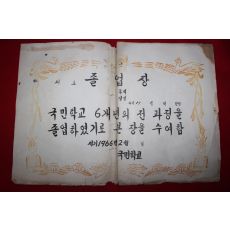 졸업장
국민학교 6개년의 전 과정을
졸업하였기로 본 장을 수여함
서기 1966년 2월 일
국민학교